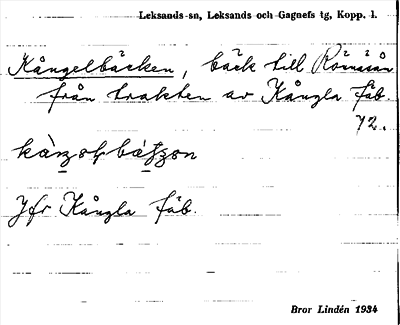 Leksands sn, Leksands och Gagnefs tg, Kopp. l.
Kångelbäcken, bäck till Römåsån
från trakten av Kångla fäb.
72.
Jfr Kångla fäb.
Bror Lindén 1934